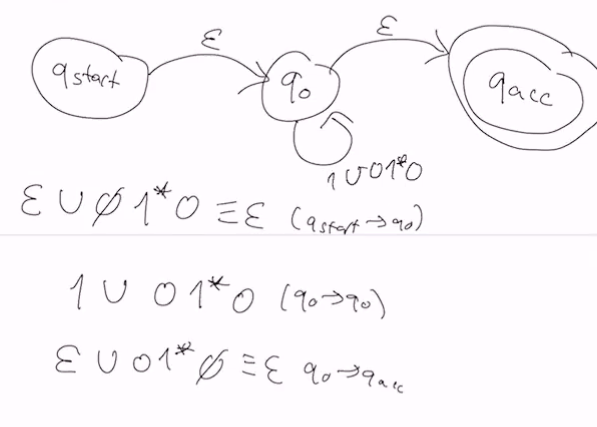 ε ε
qstart q0 qacc
1∪01*0
ε ∪ ∅1*0 ≡ ε (qstart→q0)
1 ∪ 01*0 (q0→q0)
ε ∪ 01*∅ ≡ ε q0→qacc